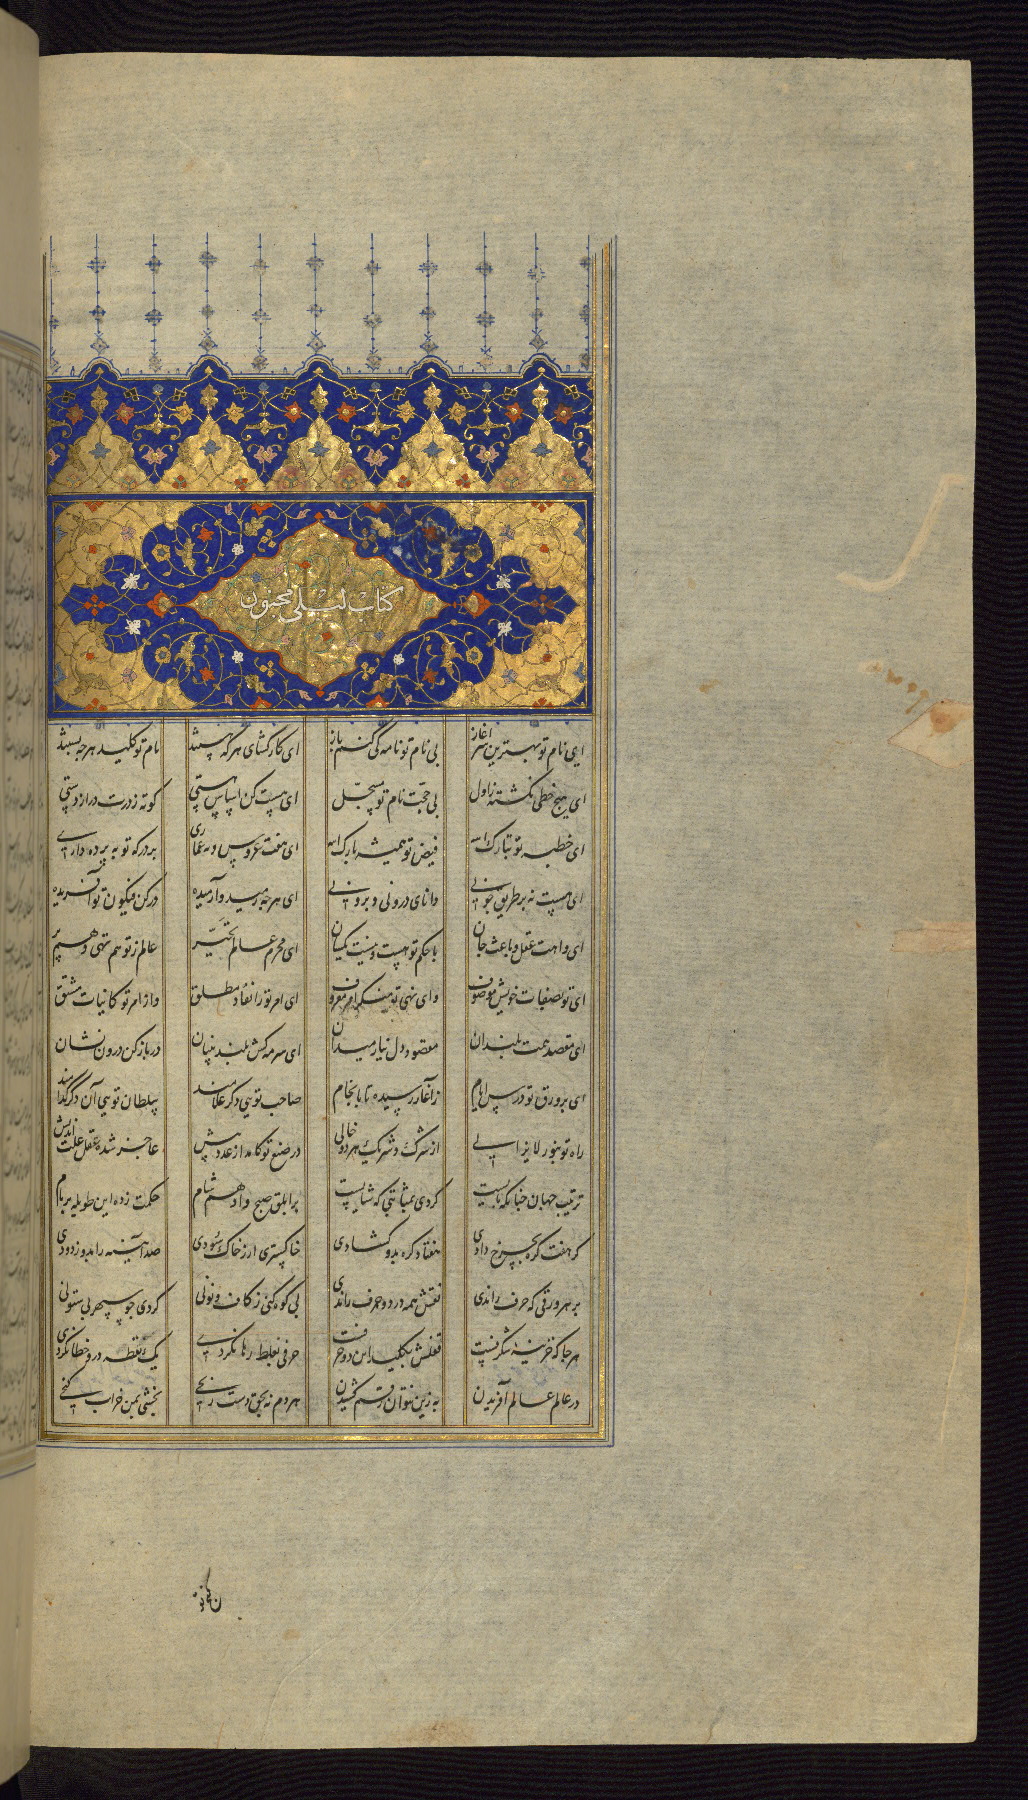 کتاب لیلی مجنون
ای نام تو بهترین سرآغاز بی نام تو نامه کی کنم باز ای کارگشای هر که هستند نام تو کلید هرچه بستند
ای هیچ خطی نگشته ز اول بی حجت نام تو مسجل ای هست کن اساس هستی کوته ز درت دراز دستی
ای خطبه تو تبارک الله فیض تو همیشه بارک الله ای هفت عروس و نه عماری بر درگه تو به پرده داری
ای هست نه بر طریق چونی دانای درونی و برونی ای هرچه رمیده و آرمیده در کن فیکون تو آفریده
ای واهب عقل و باعث جان با حکم تو هست و نیست یکسان ای محرم عالم تحیر عالم ز تو هم تهی و هم پر
ای تو بصفات خویش موصوف وای نهی تو منکر امر معروف ای امر تو را نفاذ مطلق واز امر تو کائنات مشتق
ای مقصد همت بلندان مقصود دل نیازمندان ای سرمه کش بلند بینان در باز کن درون نشینان
ای بر ورق تو درس ایام ز آغاز رسیده تا بانجام صاحب تویی دگر غلامند سلطان تویی آن دگر کدامند
راه تو بنور لایزالی از شرک و شریک هر دو خالی در صنع تو کامد از عدد بیش عاجز شده عقل علت اندیش
ترتیب جهان چنانکه بایست کردی بمثابتی که شایست بر ابلق صبح و ادهم شام حکمت زده این طویله بر بام
گر هفت گره بچرخ دادی هفتاد گره بدو گشادی خاکستری ار ز خاک سودی صد آینه را بدو زدودی
بر هر ورقی که حرف راندی نقش همه در دو حرف راندی بی کوه کنی ز کاف و نونی کردی چو سپهر بی ستونی
هر جا که خزینه شگرفست قفلش بکلید این دو حرفست حرفی بغلط رها نکردی یک نقطه درو خطا نکردی
در عالم عالم آفریدن به زین نتوان رقم کشیدن هر دم نه بحق دست رنجی بخشی بمن خراب گنجی